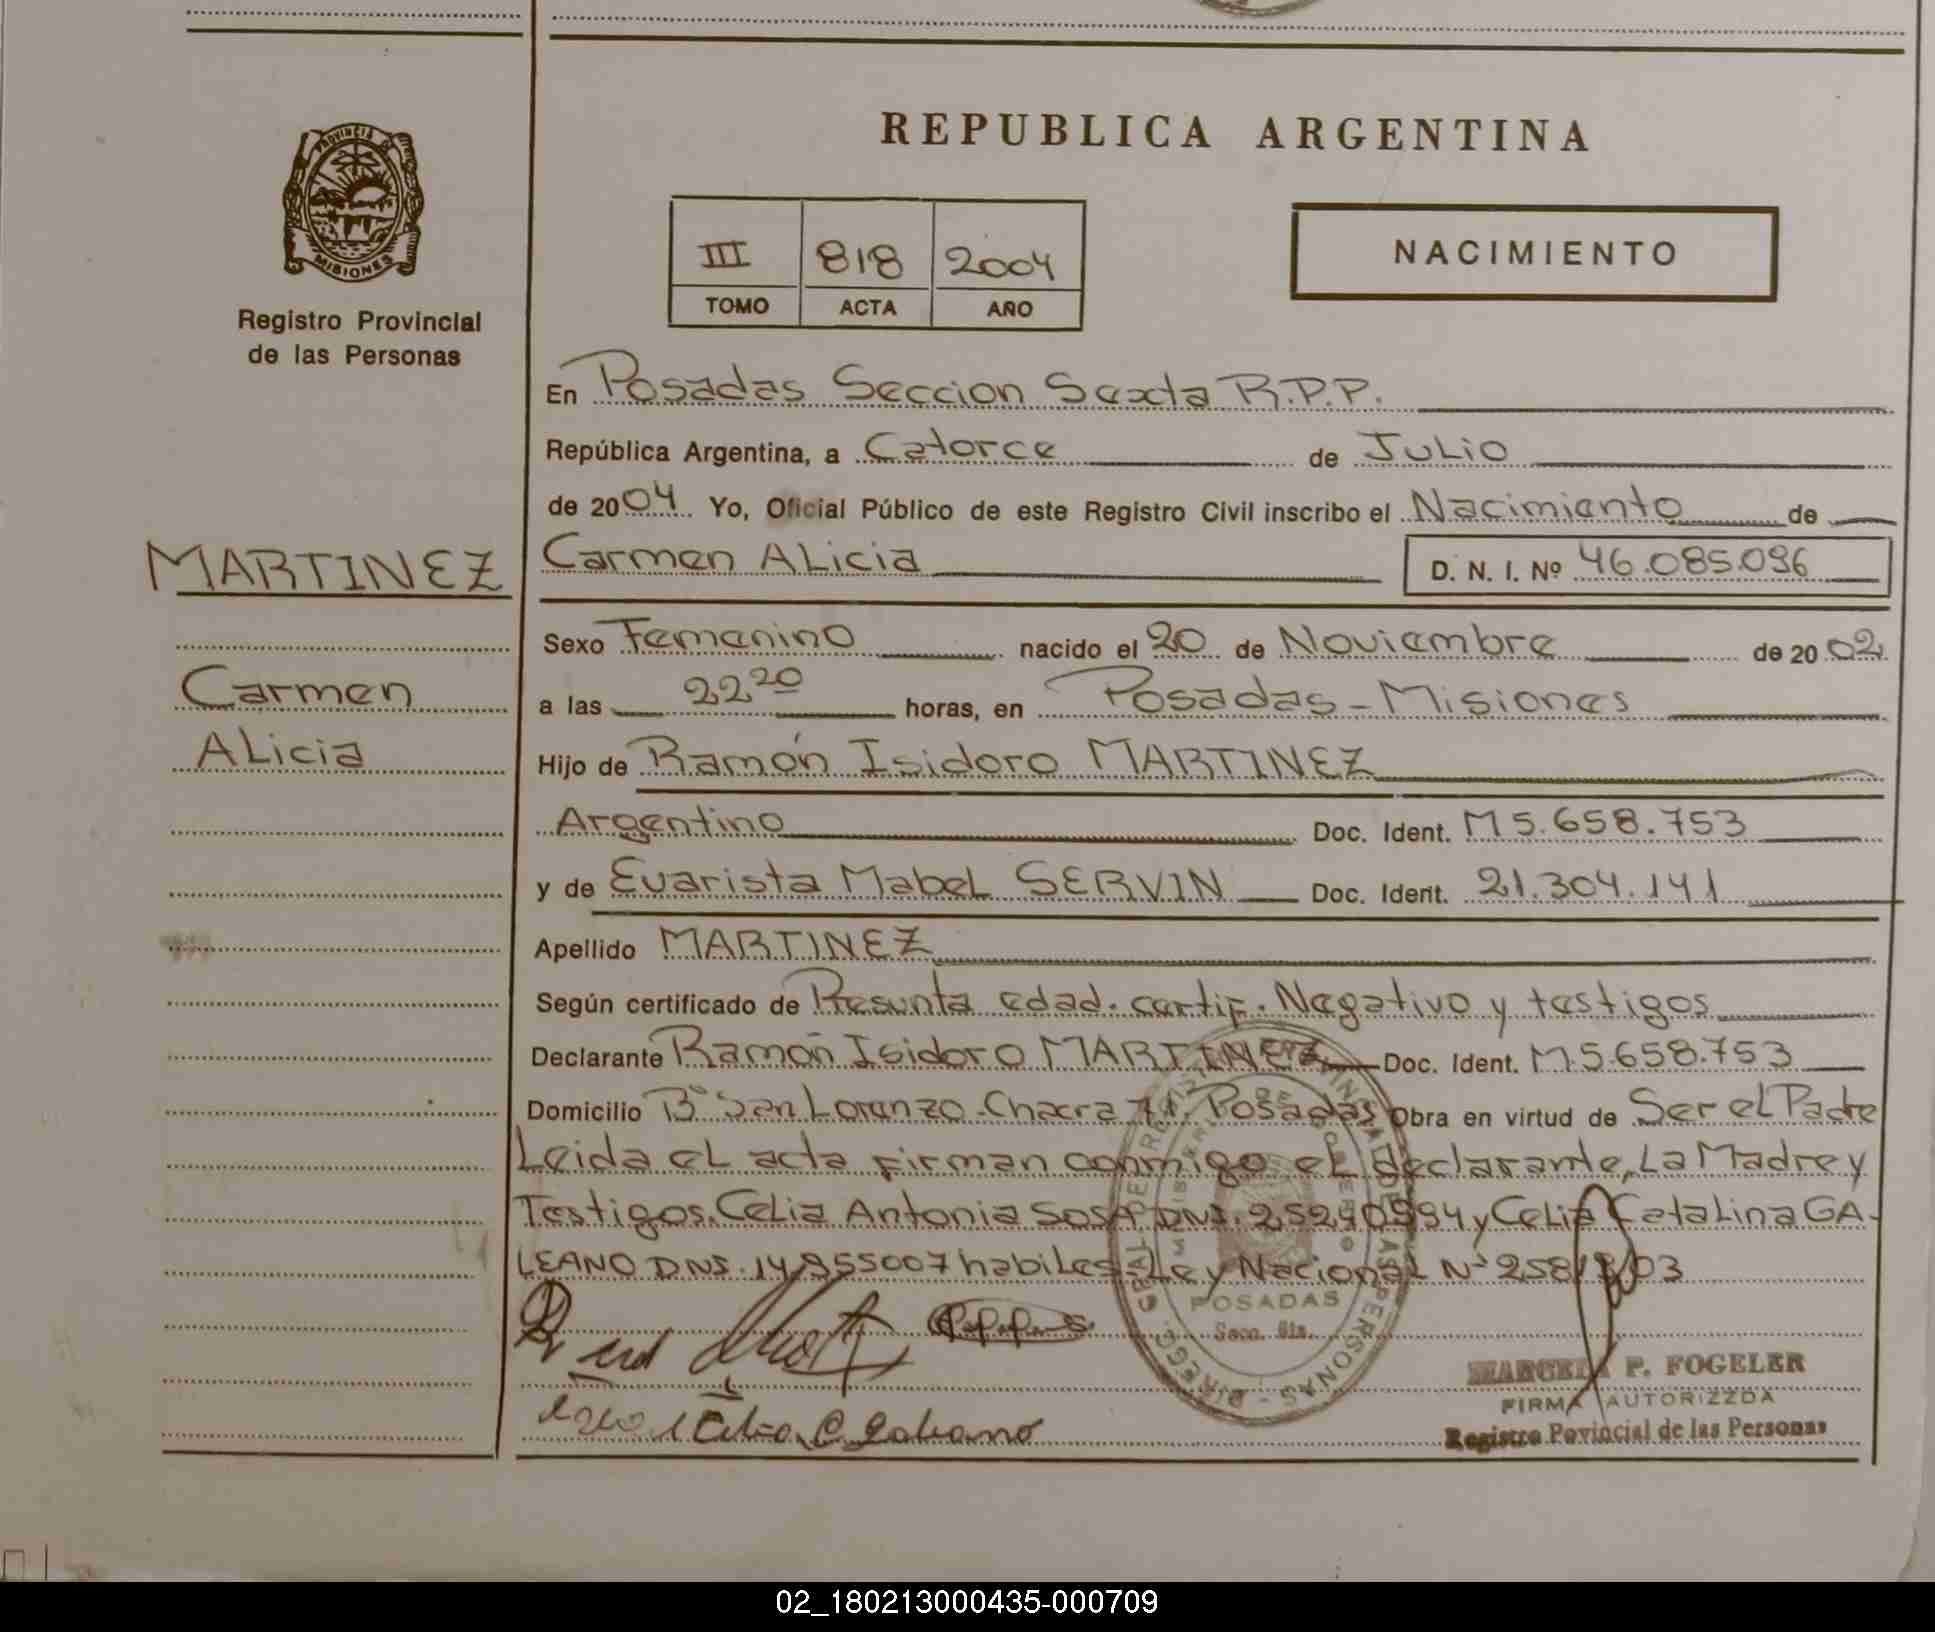 PROVINCIA DE
MISIONES
Registro Provincial
de las Personas
MARTINEZ
Carmen
ALicia
REPUBLICA ARGENTINA
III 818 2004
TOMO ACTA AÑO
NACIMIENTO
En Posadas Seccion Sexta R.P.P.
República Argentina, a Catorce de Julio
de 2004 Yo, Oficial Público de este Registro Civil inscribo el Nacimiento de
Carmen ALicia D. N. I. Nº 46.085.096
Sexo Femenino nacido el 20 de Noviembre de 2002
a las 22 20 horas, en Posadas - Misiones
Hijo de Ramón Isidoro MARTINEZ
Argentino Doc. Ident. M 5.658.753
y de Evarista Mabel SERVIN Doc. Ident. 21.304.141
Apellido MARTINEZ
Según certificado de Presunta edad. certif. Negativo y testigos
Declarante Ramón Isidoro MARTINEZ Doc. Ident. M.5.658.753
Domicilio Bº San Lorenzo - Chacra Posadas Obra en virtud de Ser el Padre
Leida el acta firman conmigo el declarante, La Madre y
Testigos. Celia Antonia SOSA DNI. y Celia Catalina GA-
LEANO DNI. 14.955007 habiles - Ley Nacional Nº
POSADAS
Secc. 6ta.
Celia C. Galeano
MARCELA P. FOGELER
FIRMA AUTORIZZDA
Registro Povincial de las Personas
02_180213000435-000709